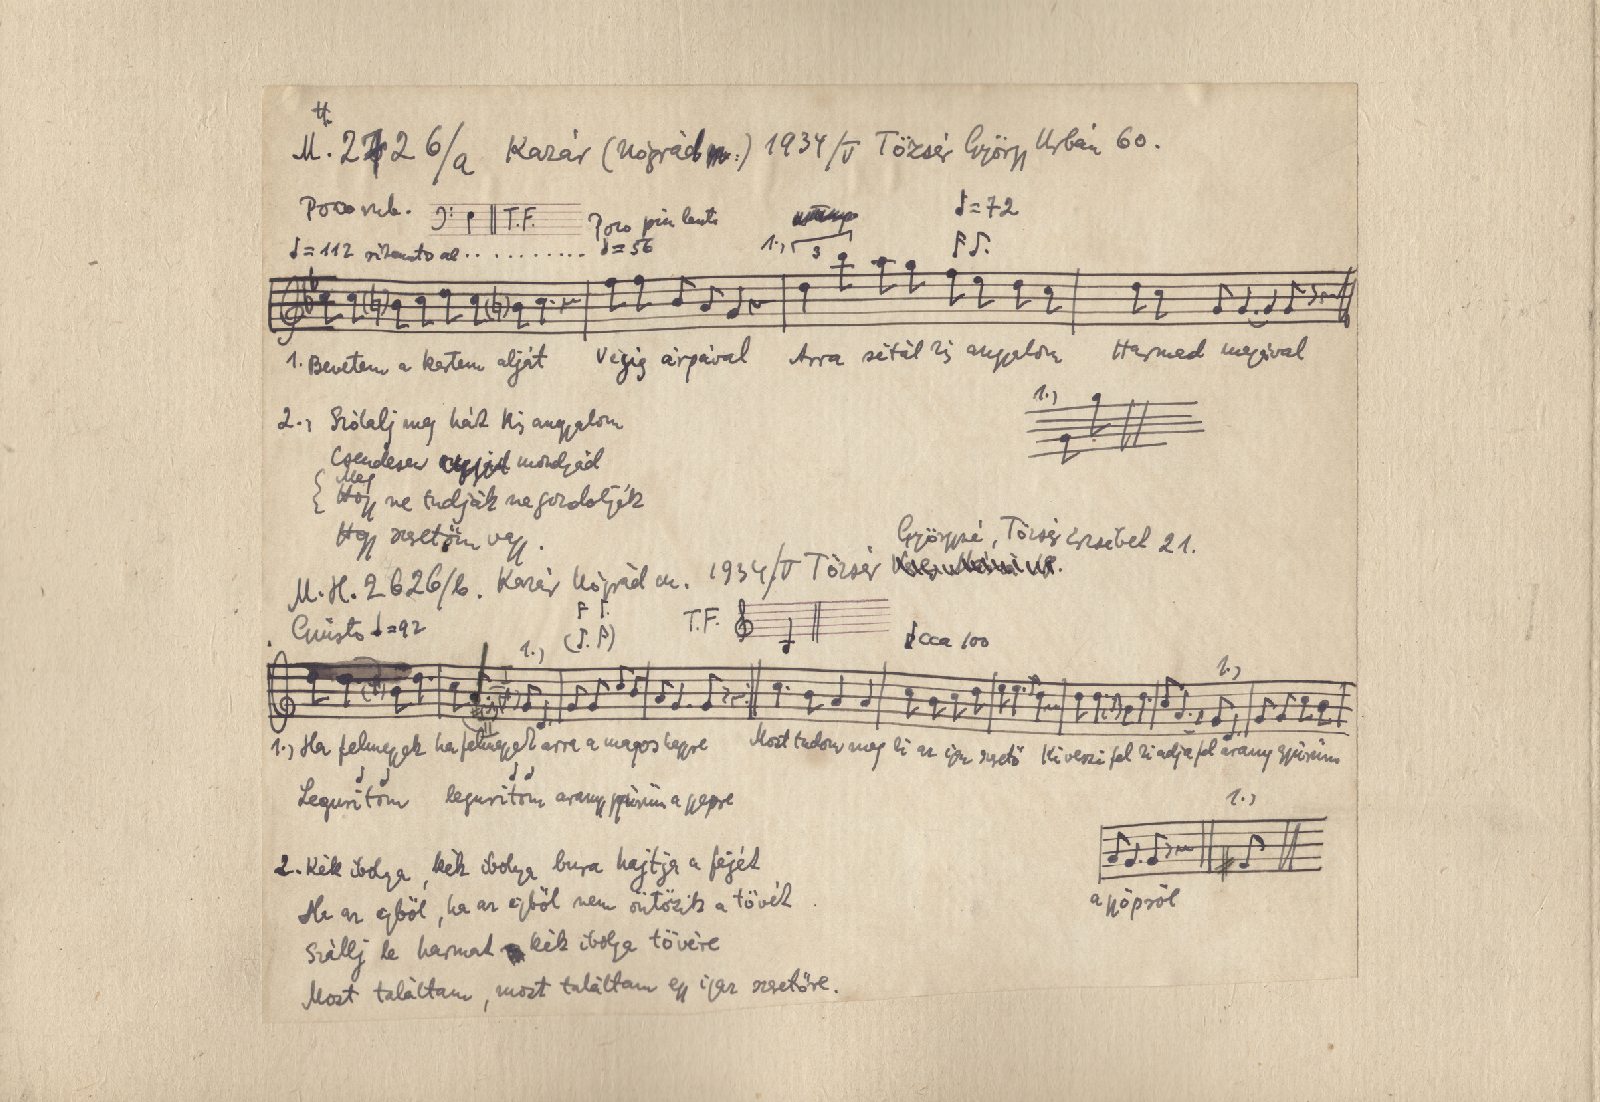 H.
M. 2626/a Kazár (Nógrád m.) 1934/V Tőzsér György Urbán 60.
Poco rub. T.F. Poco più lento
♩=112 ritenuto al . . . . . . . . . . ♩=56 1., 3 ♩=72
1. Bevetem a kertem alját Végig árpával Arra sétál kis angyalom Harmad magával
1.,
2., Szólalj meg hát kis angyalom
Csendesen mondjad
Meg
Hogy ne tudják ne gondolják
Hogy szeretőm vagy.
Györgyné, Tőzsér Erzsébet 21.
M. H. 2626/b. Kazár Nógrád m. 1934/V Tőzsér
Giusto ♩=92 T.F. ♩ cca 100
1., 1.,
1., Ha felmegyek ha felmegyek arra a magos hegyre Most tudom meg ki az igaz szerető Ki veszi fel ki adja fel arany gyűrűm
Legurítom legurítom arany gyűrűm a gyepre
1.,
a gyöpről
2. Kék ibolya, kék ibolya búra hajtja a fejét
Ha az égből, ha az égből nem öntözik a tövét
Szállj le harmat kék ibolya tövére
Most találtam, most találtam egy igaz szeretőre.